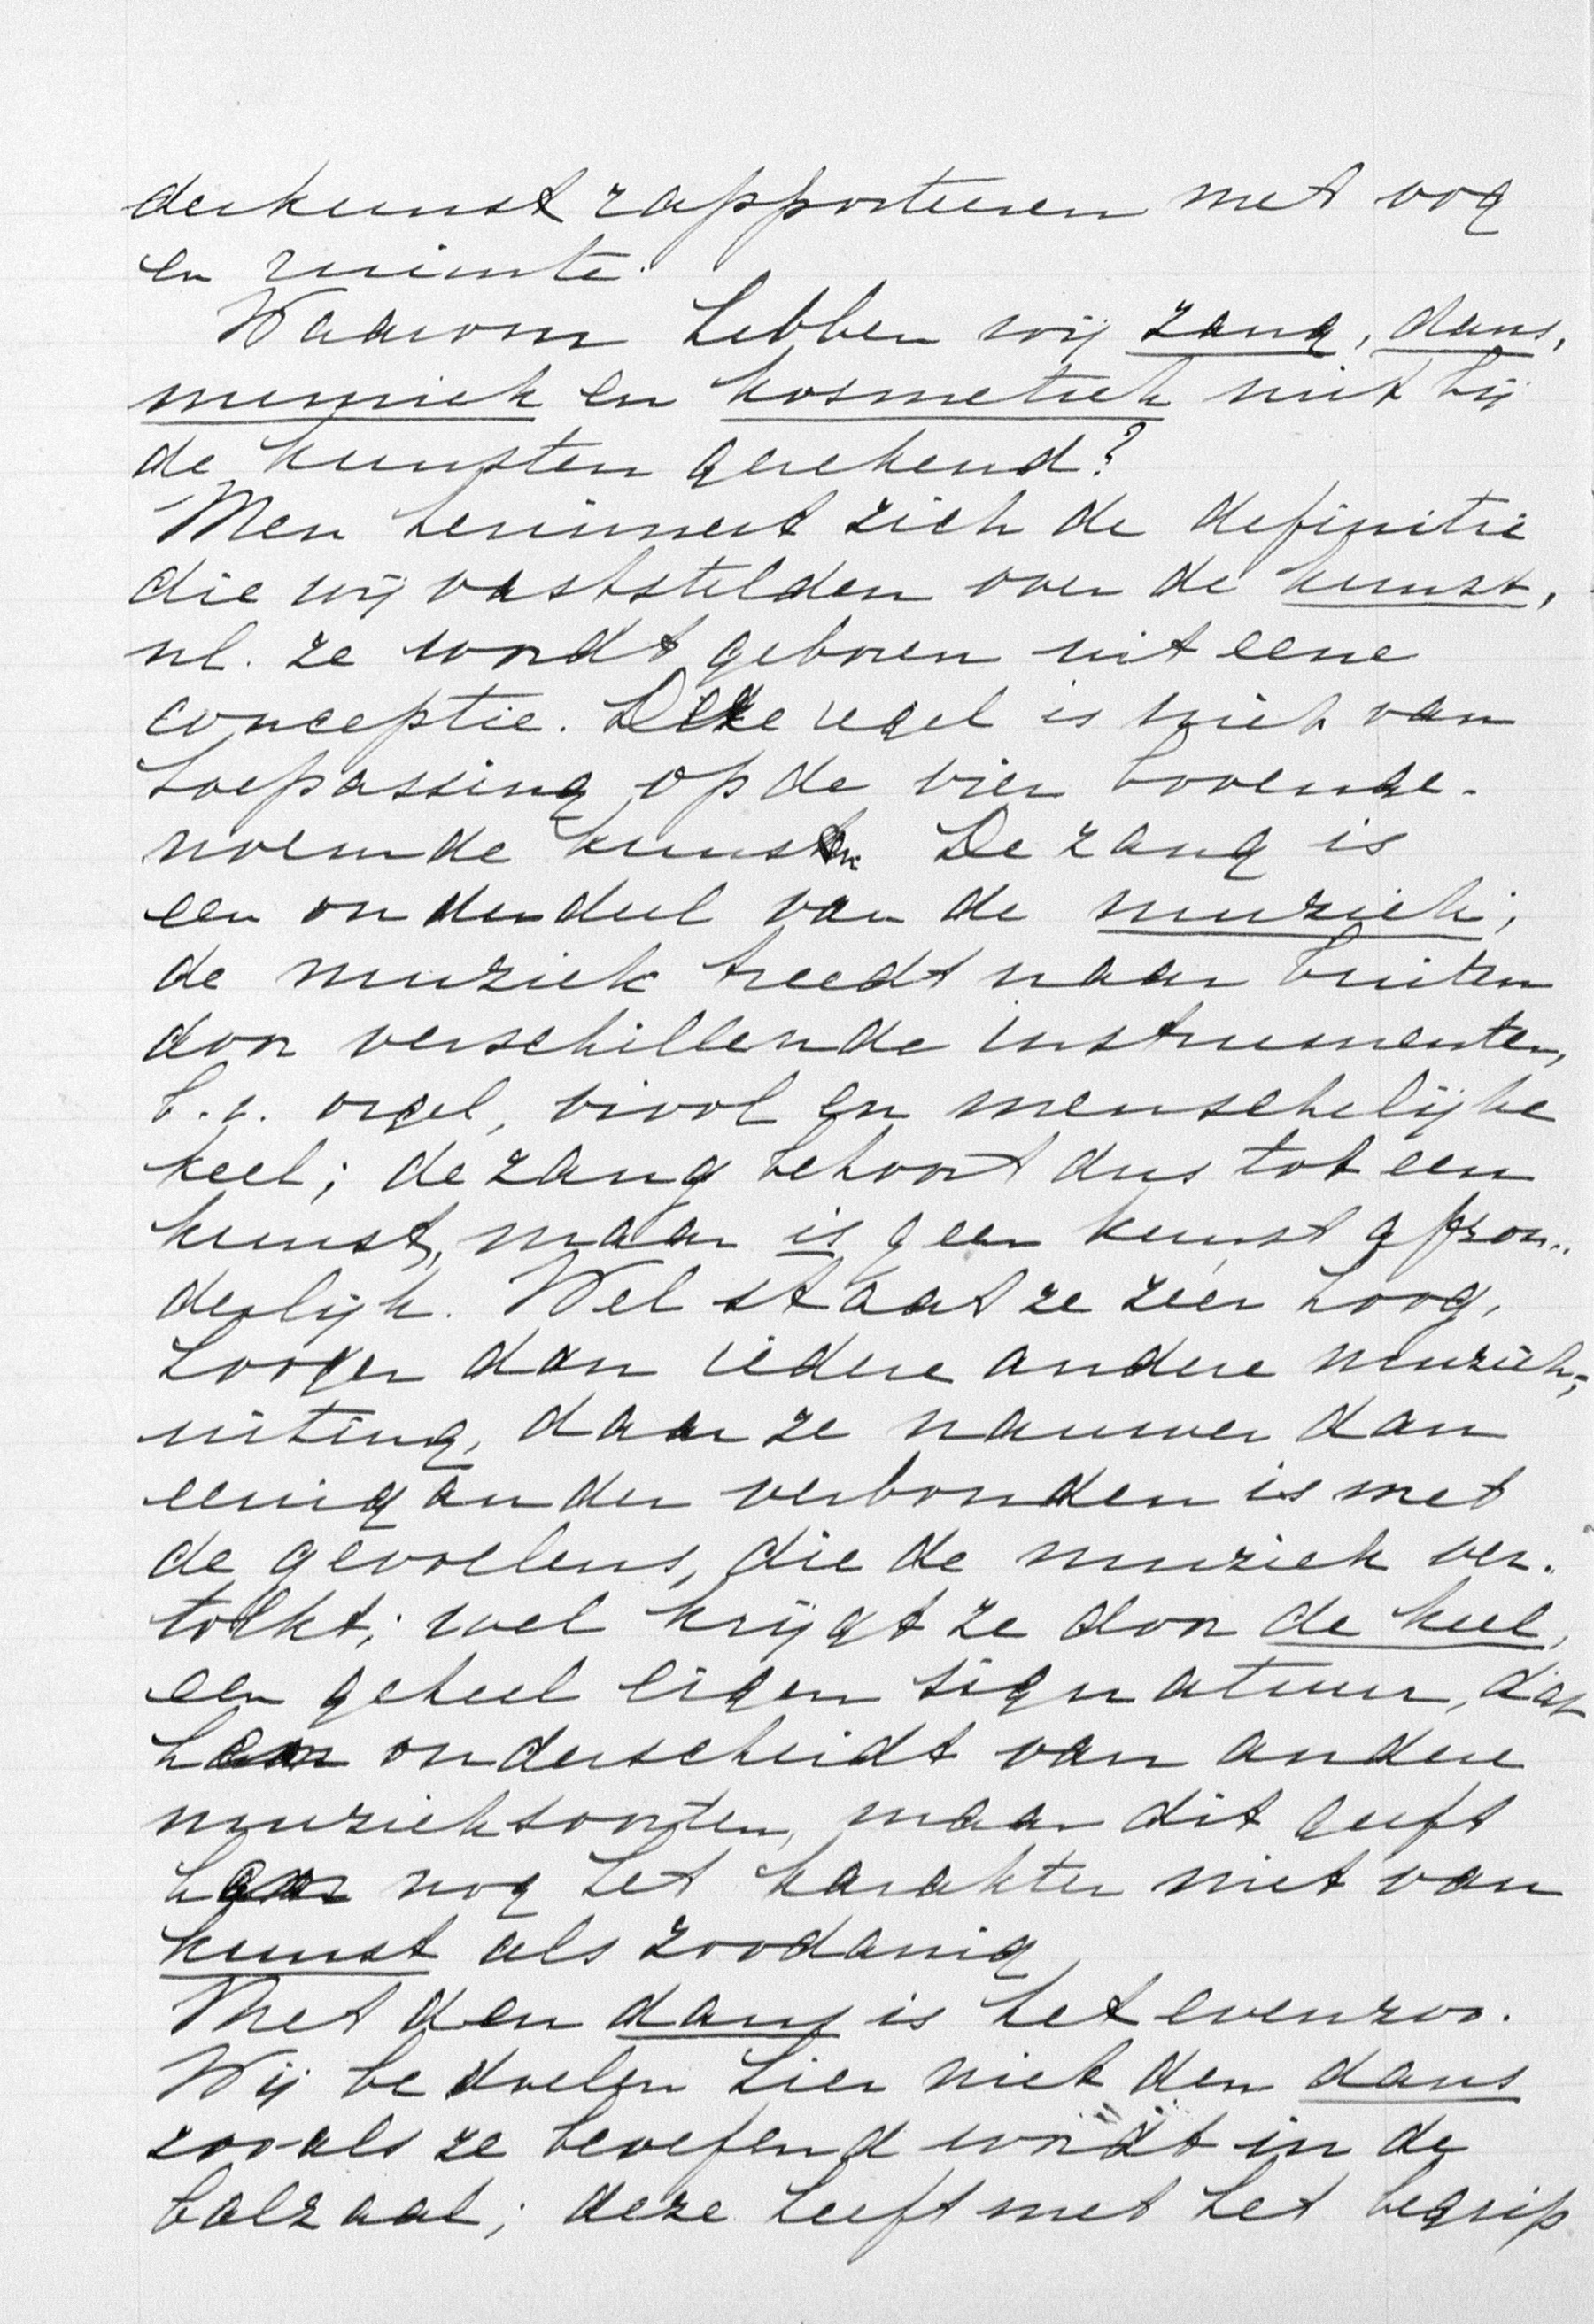 derkunst rapporteeren met oog
en ruimte.
Waarom hebben wij zang, dans,
mimiek en kosmetiek niet bij
de kunsten gerekend?
Men herinnert zich de definitie
die wij vaststelden over de kunst,
nl. ze wordt geboren uit eene
conceptie. Deze regel is niet van
toepassing op de vier bovenge-
noemde kunsten. De zang is
een onderdeel van de muziek;
de muziek treedt naar buiten
door verschillende instrumenten,
b.v. orgel, viool en menschelijke
keel; de zang behoort dus tot een
kunst, maar is geen kunst afzon-
derlijk. Wel staat ze zéér hoog,
hooger dan iedere andere muziek-
uiting, daar ze nauwer dan
eenig ander verbonden is met
de gevoelens, die de muziek ver-
tolkt; wel krijgt ze door de keel,
een geheel eigen signatuur, dat
haar onderscheidt van andere
muzieksoorten, maar dit geeft
haar nog het karakter niet van
kunst als zoodanig
Met den dans is het evenzoo.
Wij bedoelen hier niet den dans
zooals ze beoefend wordt in de
balzaal; deze heeft met het begrip